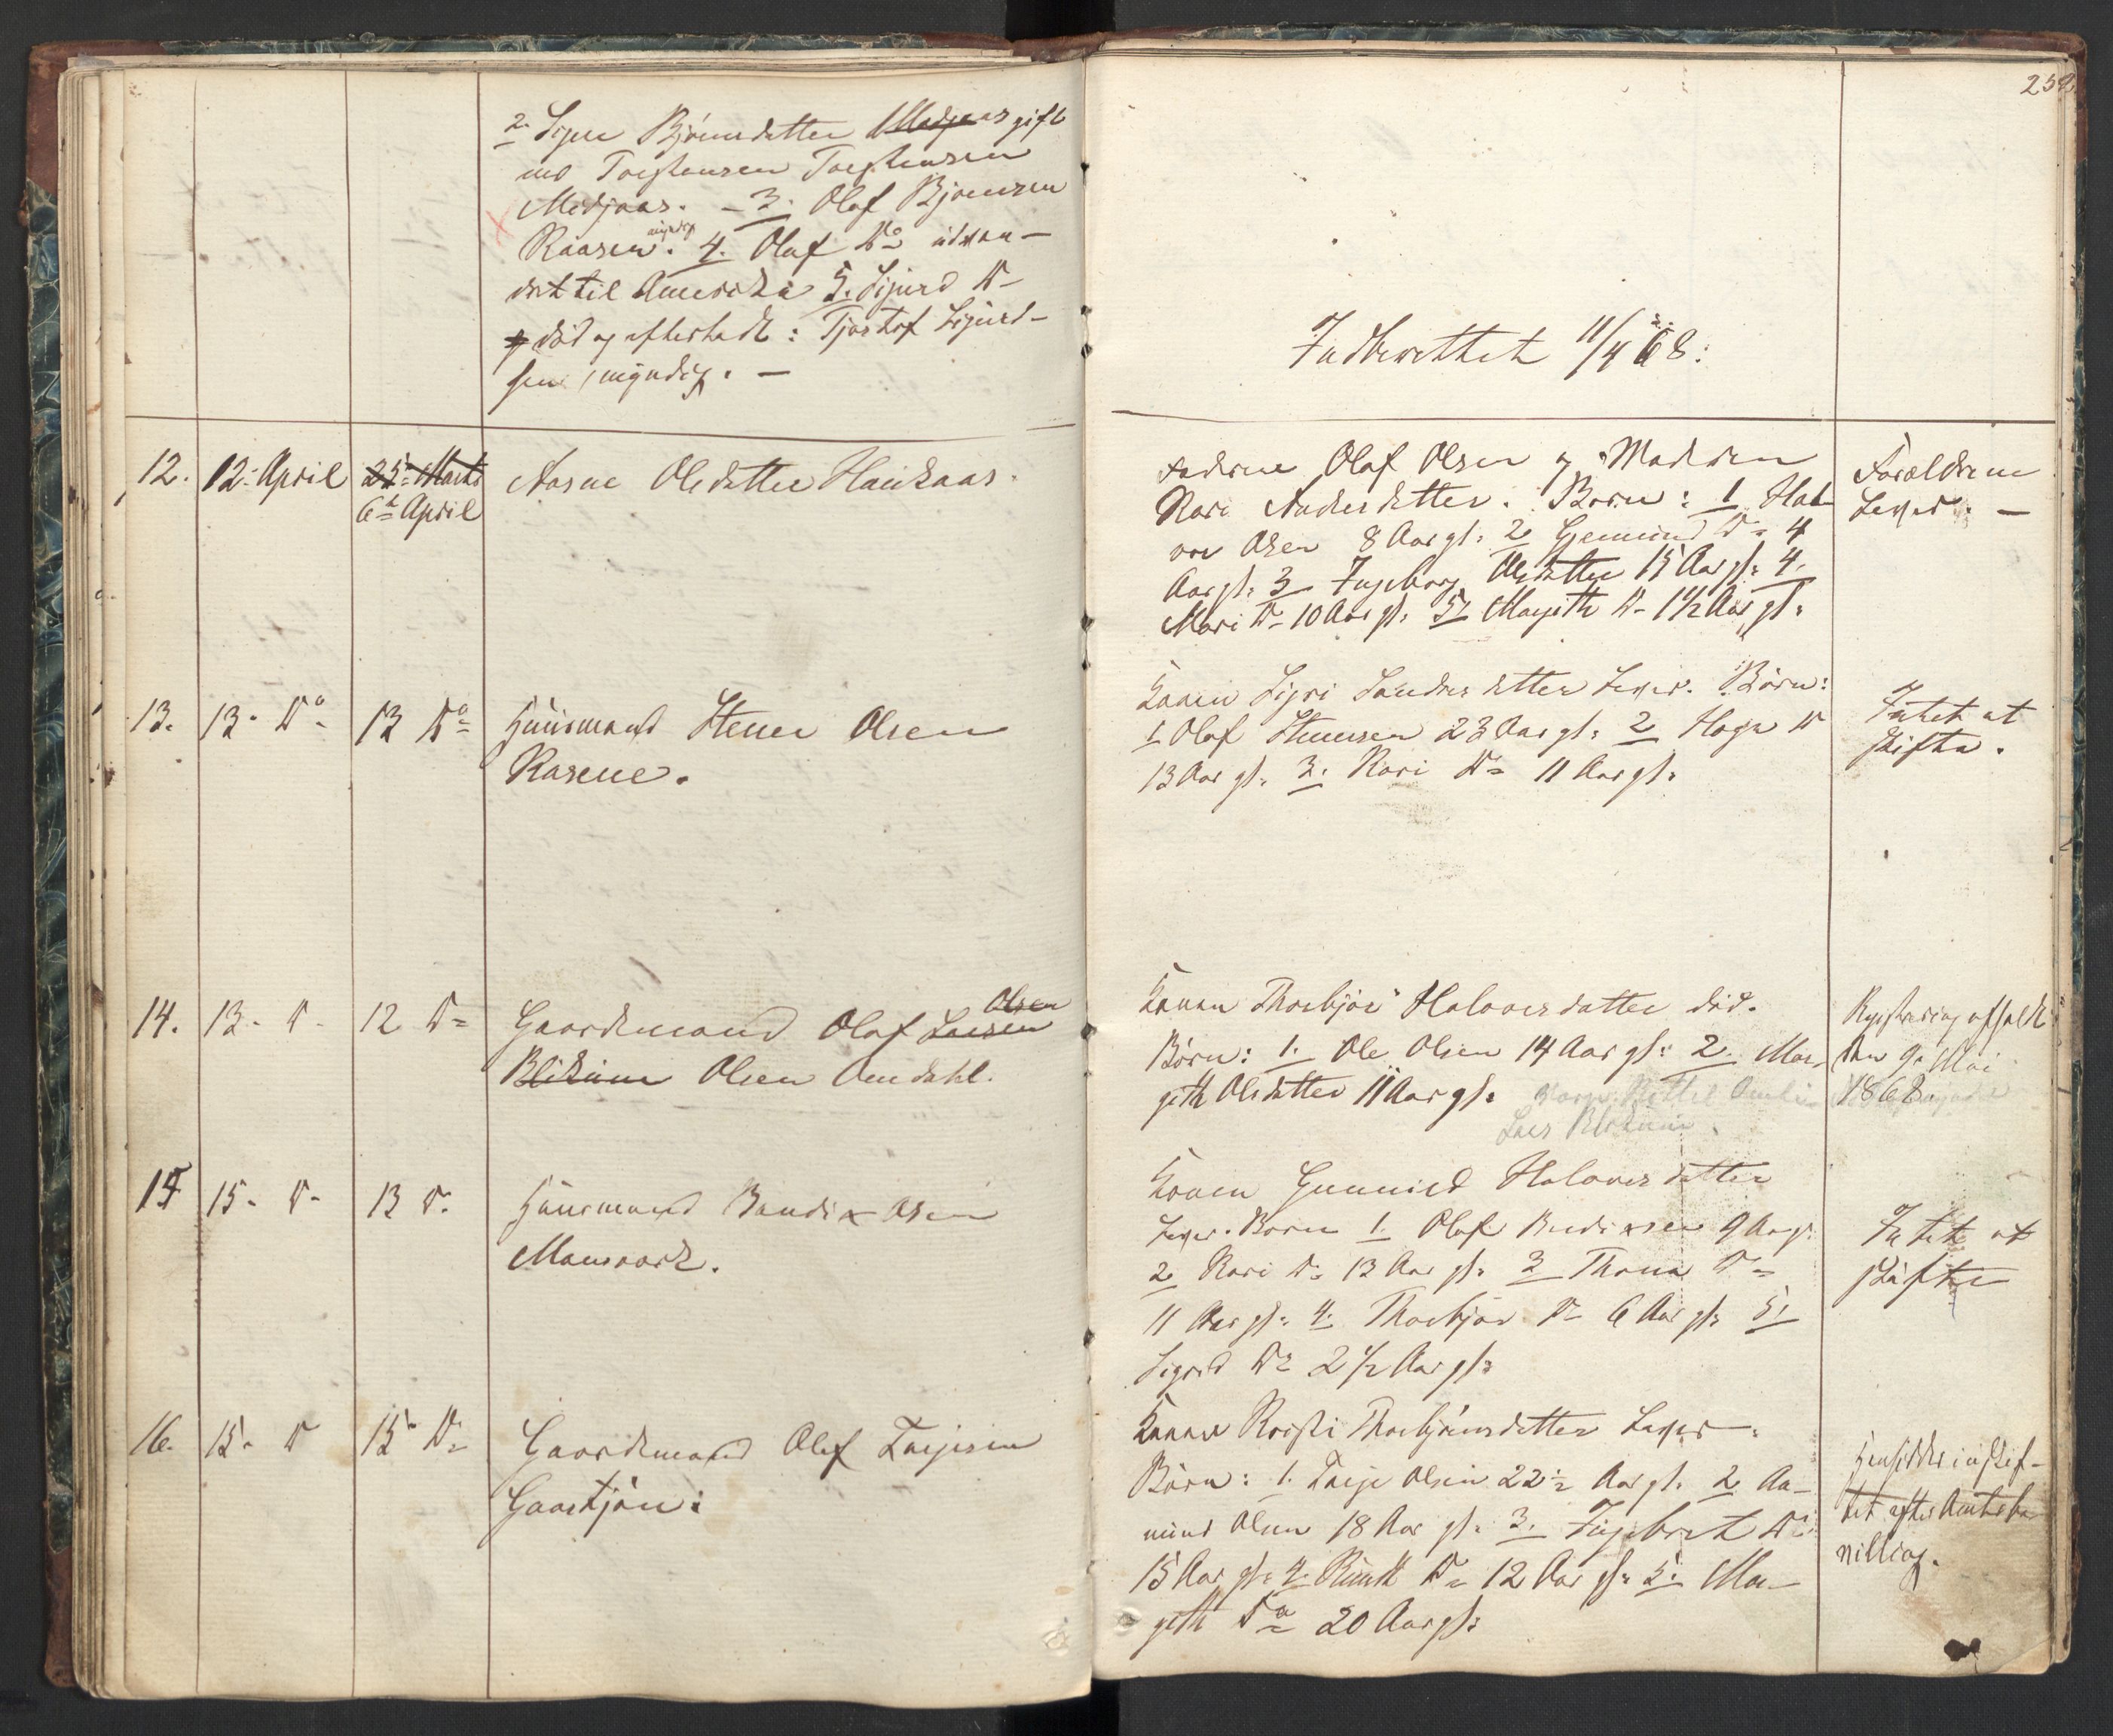 2. Signe Bjørnsdatter Midjaas gift
md Torstensen Torstensen
Midjaas. - 3. Olaf Bjørnsen
Raasen. myndig 4. Olaf Do udvan-
dret til Amerika 5. Sigurd D-
død og efterladt: Tjostof Sigurd-
sen, myndig. -
258
Indberettet 11/4 68.
12. 12. April 25. Marts
6te April
Aasne Olsdatter Haukaas.
Faderne Olaf Olsen og Moderen
Kari Andersdatter. Børn: 1 Hal-
vor Olsen 8 Aar gl: 2 Gjermund D- 4
Aar gl: 3 Ingeborg Olsdatter 15 Aar gl: 4.
Mari D- 10 Aar gl. 5. Margith D- 1 1/2 Aar gl:
Forældrene
Lever. -
13. 13. Do 13 Do
Huusmand Stener Olsen
Rasene.
Konen Sigri Sondresdatter Lever. Børn:
1 Olaf Stenersen 23 Aar gl: 2 Hage D
13 Aar gl. 3. Kari D- 11 Aar gl:
Intet at
skifte.
14. 13. D- 12 D-
Gaardmand Olaf Larsen Olsen
Blikum Olsen Omdahl.
Konen Thorbjør Halvorsdatter død.
Børn: 1. Ole Olsen 14 Aar gl: 2. Mar-
gith Olsdatter 11 Aar gl:
Lars Blikum.
Registrering afholdt
den 9. Mai
1868
15 15. D- 13 D.
Huusmand Bendix Olsen
Mansvark.
Konen Gunnild Halvorsdatter
Lever. Børn 1. Olaf Bendixsen 9 Aar gl:
2 Kari D- 13 Aar gl: 3 Thone D-
11 Aar gl: 4. Thorbjør D- 6 Aar gl: 5.
Sigrid D- 2 1/2 Aar gl:
Intet at
skifte
16. 15. D 15 D-
Gaardmand Olaf Tarjesen
Gaastjøn:
Konen Kirsti Thorbjørnsdatter Lever.
Børn: 1. Tarje Olsen 22 Aar gl. 2 Aa-
mund Olsen 18 Aar gl: 3. Ingebret D-
15 Aar gl: 4. D- 12 Aar gl: 5. Mar-
gith Do 20 Aar gl:
Hensidder i uskif-
tet efter Amtsbe-
villing.